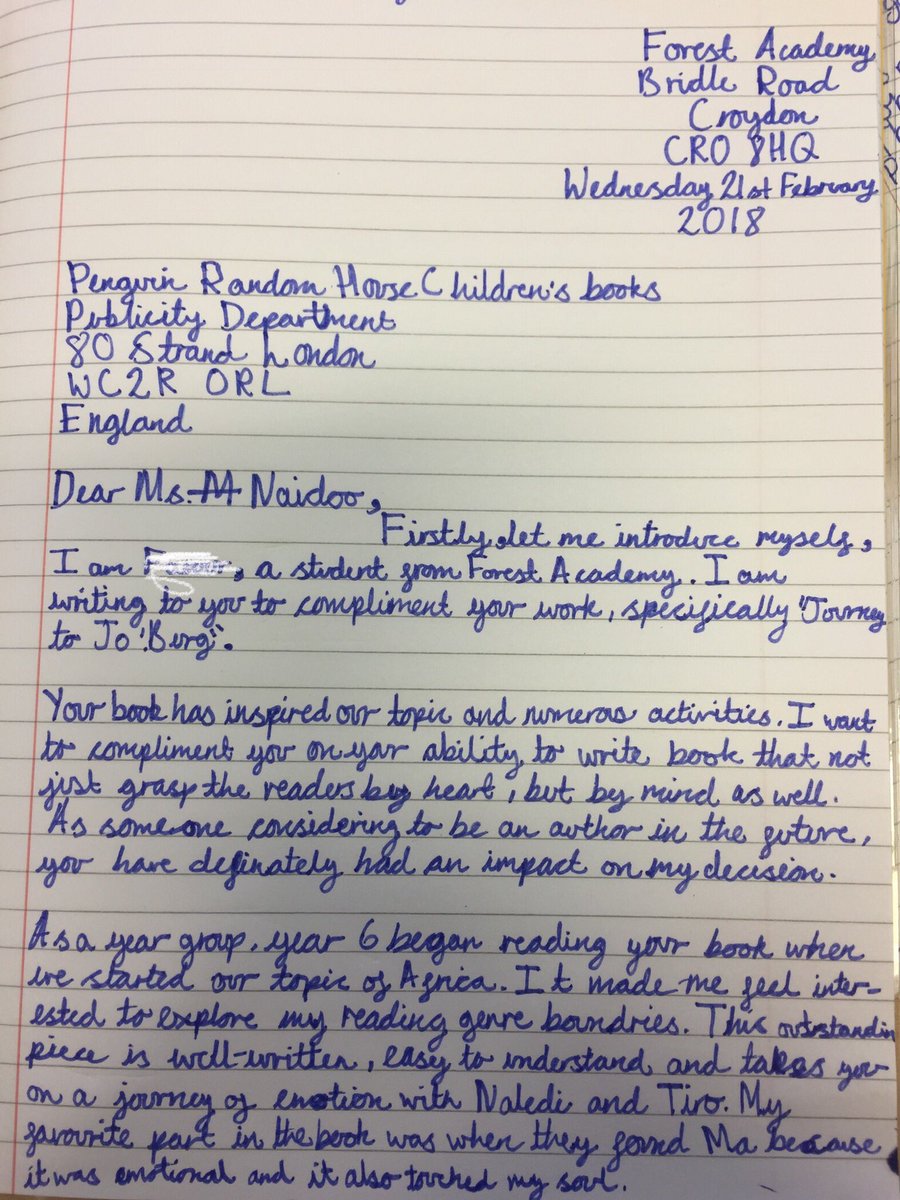 Forest Academy
Bridle Road
Croydon
CRO 8HQ
Wednesday 21st February
2018
Penguin Random House Children's books
Publicity Department
80 Strand London
WC2R ORL
England
Dear Ms. Naidoo,
Firstly, let me introduce myself,
I am , a student from Forest Academy. I am
writing to you to compliment your work, specifically 'Journey
to Jo'Burg'.
Your book has inspired our topic and numeras activities. I want
to compliment you on yar ability to write book that not
just grasp the readers by heart, but by mind as well.
As someone considering to be an author in the future,
you have definately had an impact on my decision.
As a year group, year 6 began reading your book when
we started our topic of Africa. It made me feel inter-
ested to explore my reading genre boundries. This outstandin
piece is well-written, easy to understand and takes you
on a journey of emotion with Naledi and Tiro. My
favourite part in the book was when they found Ma because
it was emotional and it also touched my soul.